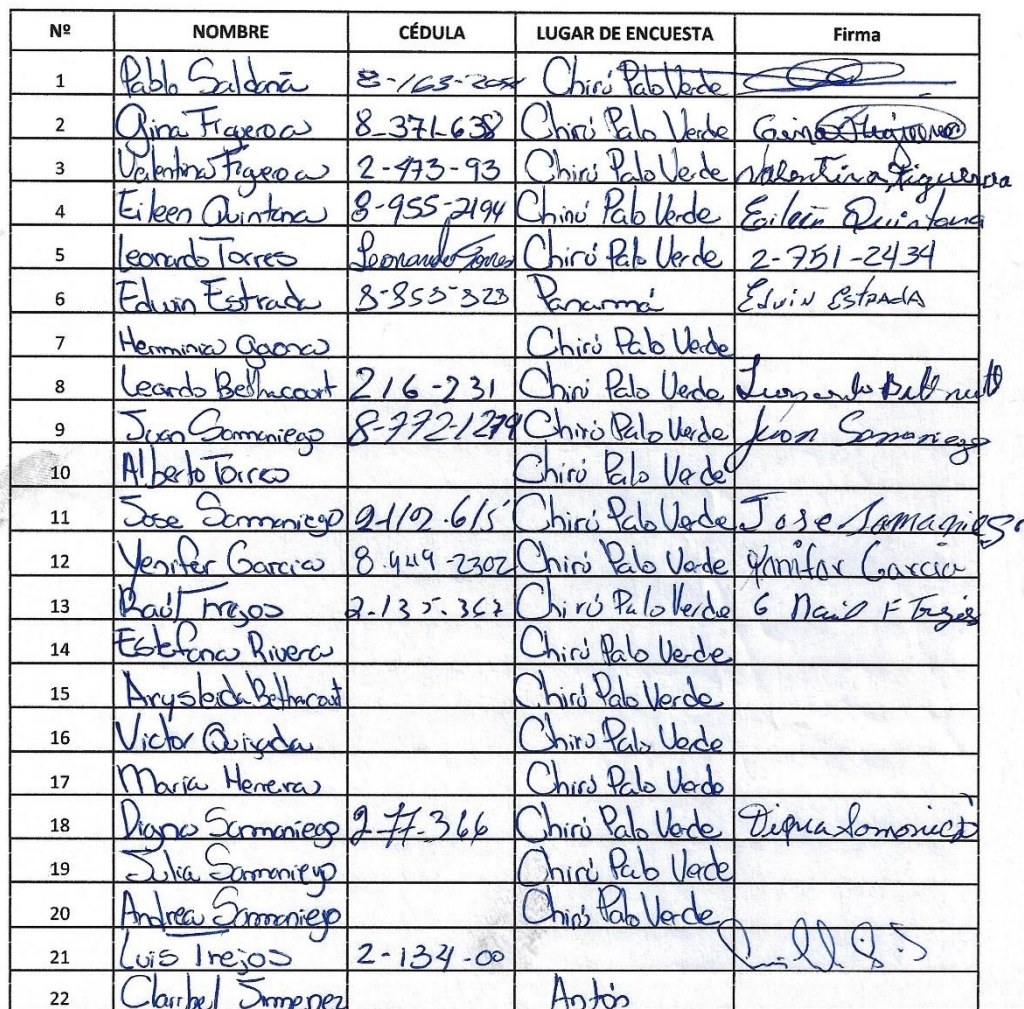 Nº NOMBRE CÉDULA LUGAR DE ENCUESTA Firma
1 Pablo Saldaña 8-163-2054 Chirú Palo Verde
2 Gina Figeroa 8-371-638 Chirú Palo Verde Gina Figueroa
3 Valentina Figeroa 2-473-93 Chirú Palo Verde Valentina Figueroa
4 Eileen Quintana 8-955-2194 Chirú Palo Verde Eileen Quintana
5 Leonardo Torres Leonardo Torres Chirú Palo Verde 2-751-2434
6 Edwin Estrada 8-853-323 Panamá Edwin Estrada
7 Herminia Gaona Chirú Palo Verde
8 Leardo Bethacourt 216-231 Chirú Palo Verde
9 Juan Sarmaniego 8-772-1279 Chirú Palo Verde Juan Samaniego
10 Alberto Torres Chirú Palo Verde
11 Jose Sarmaniego Chirú Palo Verde Jose Samaniego
12 Yenifer Garcia 8-949-2302 Chirú Palo Verde Yenifer Garcia
13 Raúl Trejos 2-135-367 Chirú Palo Verde
14 Estefana Rivera Chirú Palo Verde
15 Aryseida Bethacourt Chirú Palo Verde
16 Victor Quizada Chirú Palo Verde
17 Maria Herrera Chirú Palo Verde
18 Digna Sarmaniego 2-77-366 Chirú Palo Verde Digna
19 Julia Sarmaniego Chirú Palo Verde
20 Andrea Sarmaniego Chirú Palo Verde
21 Luis Trejos 2-134-00
22 Claribel Jimenez Antós